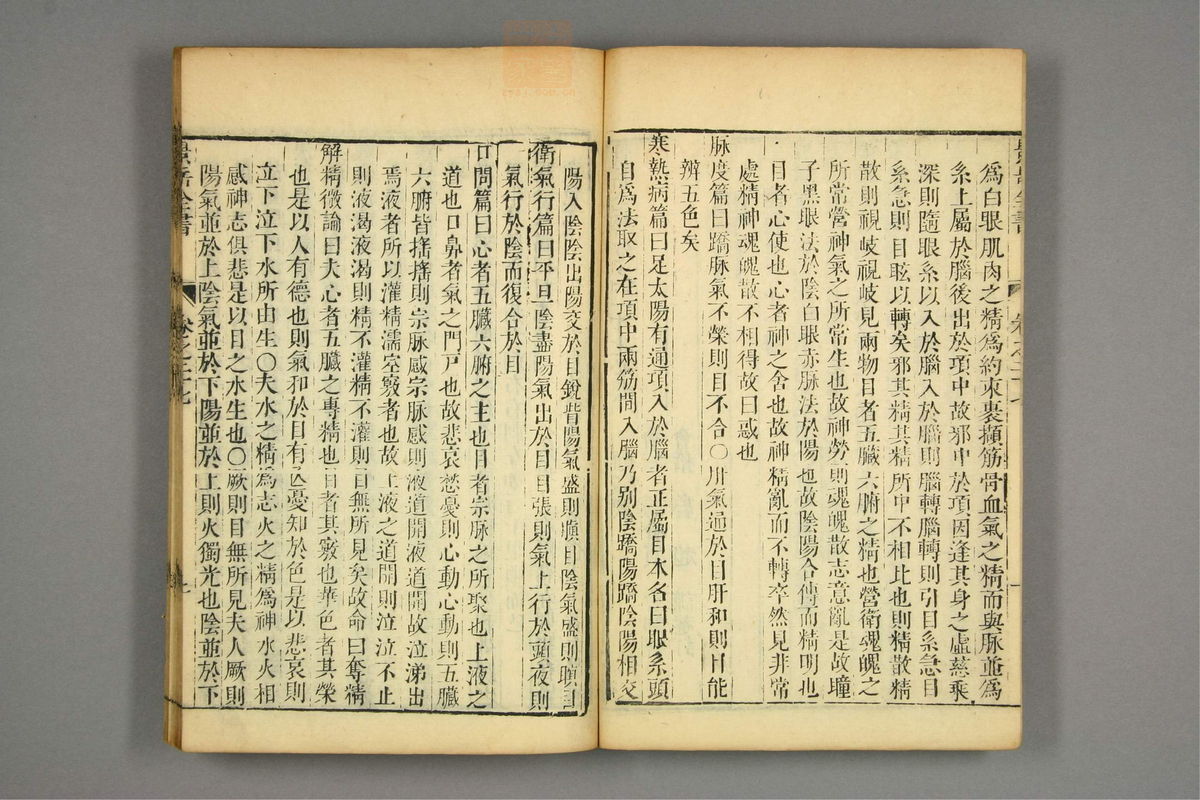 為白眼肌肉之精爲約束裹擷筋骨血氣之精而與脉並爲
系上屬於腦後出於項中故邪中於項因逢其身之虛其乘
深則隨眼系以入於腦入於腦則腦轉腦轉則引目系急目
系急則目眩以轉矣邪其精其精所中不相比也則精散精
散則視岐視岐見兩物目者五臟六腑之精也營衛魂魄之
所常營神氣之所常生也故神勞則魂魄散志意亂是故瞳
子黑眼法於陰白眼赤脉法於陽也故陰陽合傳而精明也
目者心使也心者神之舍也故神精亂而不轉卒然見非常
處精神魂魄散不相得故曰惑也
脉度篇曰蹻脉氣不榮則目不合○肝氣通於目肝和則目能
辨五色矣
寒熱病篇曰足太陽有通項入於腦者正屬目本名曰眼系頭
目爲法取之在項中兩筋間入腦乃別陰蹻陽蹻陰陽相交
陽入陰陰出陽交於目銳眥陽氣盛則瞋目陰氣盛則瞑目
衛氣行篇曰平旦陰盡陽氣出於目目張則氣上行於頭夜則
氣行於陰而復合於目
口問篇曰心者五臟六腑之主也目者宗脉之所聚也上液之
道也口鼻者氣之門戸也故悲哀愁憂則心動心動則五臟
六腑皆搖搖則宗脉感宗脉感則液道開液道開故泣涕出
焉液者所以灌精濡空竅者也故上液之道開則泣泣不止
則液渴液渴則精不灌精不灌則目無所見矣故命曰奪精
解精微論曰夫心者五臟之專精也目者其竅也華色者其榮
也是以人有德也則氣和於目有亡憂知於色是以悲哀則
泣下泣下水所由生○夫水之精爲志火之精爲神水火相
感神志俱悲是以目之水生也○厥則目無所見夫人厥則
陽氣並於上陰氣並於下陽並於上則火獨光也陰並於下
景岳全書 卷之二七